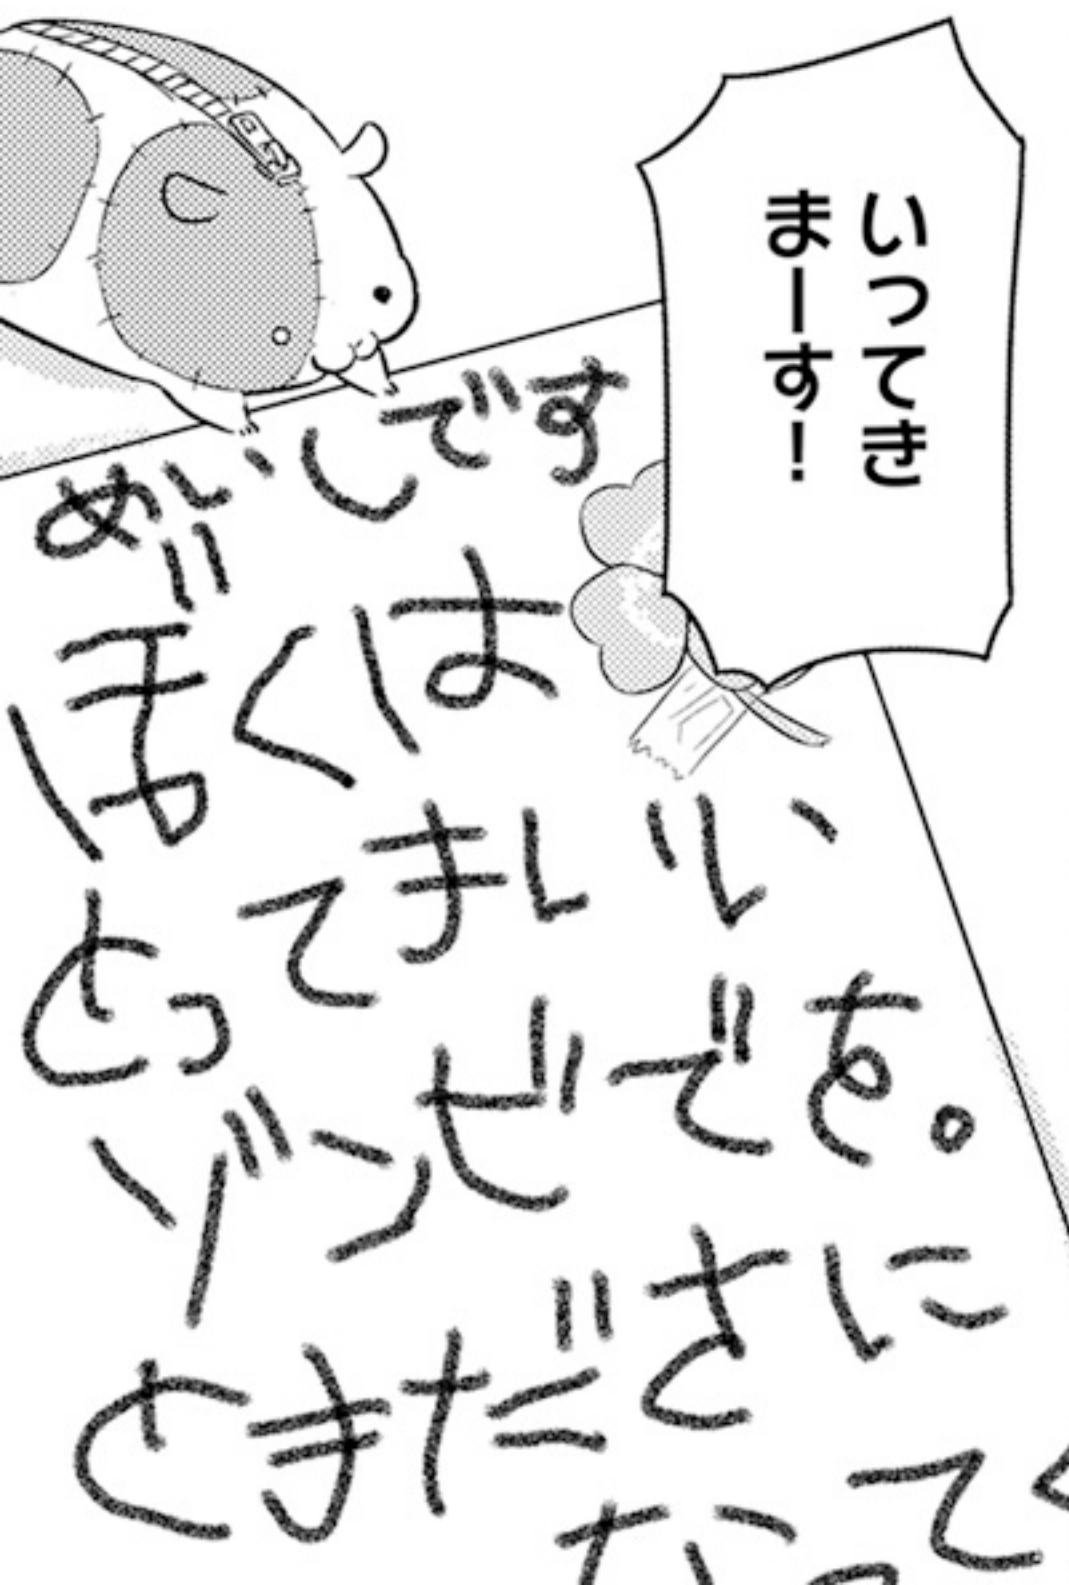 いってき
まーす!
めいしです
ぼくは
とってもいい
ゾンビです。
ともだちに
なってく